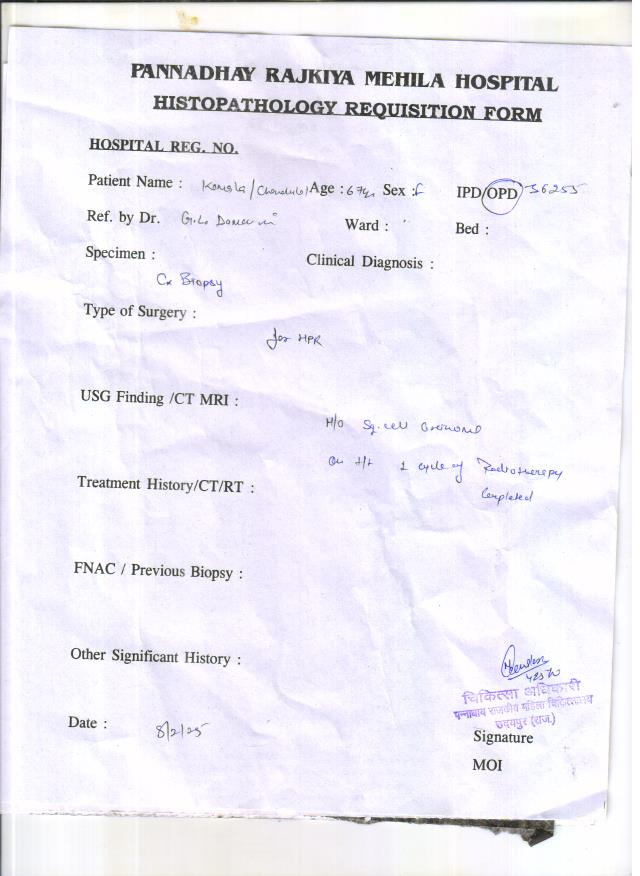 PANNADHAY RAJKIYA MEHILA HOSPITAL
HISTOPATHOLOGY REQUISITION FORM
HOSPITAL REG. NO.
Patient Name : Kamla / Age : 67y. Sex : f IPD/OPD 36255
Ref. by Dr. G.L. Ward : Bed :
Specimen : Clinical Diagnosis :
Cx Biopsy
Type of Surgery :
for HPR
USG Finding /CT MRI :
H/O Sq. cell
on 1 cycle of Radiotherapy
Completed
Treatment History/CT/RT :
FNAC / Previous Biopsy :
Other Significant History :
चिकित्सा अधिकारी
पन्नाधाय राजकीय महिला चिकित्सालय
उदयपुर (राज.)
Date : 8/2/25
Signature
MOI